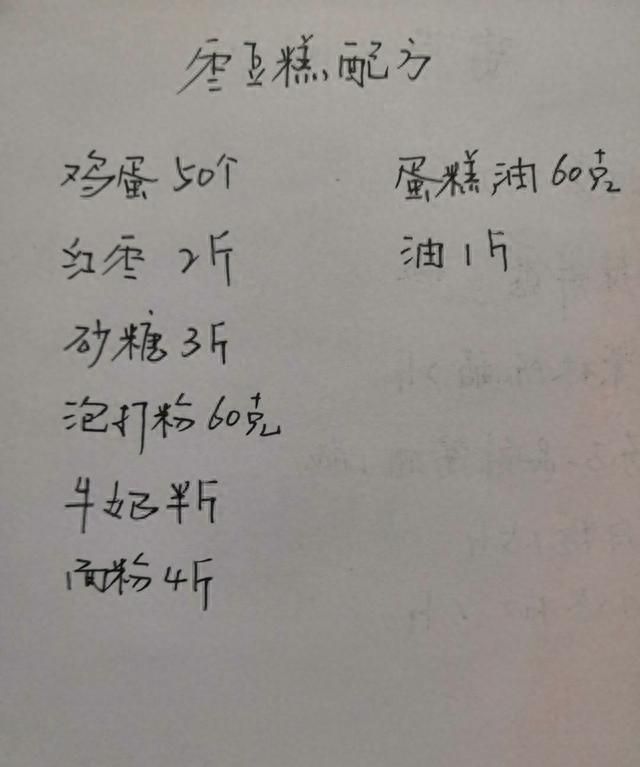 枣豆糕配方
鸡蛋50个
红枣2斤
砂糖3斤
泡打粉60克
牛奶半斤
面粉4斤
蛋糕油60克
油1斤